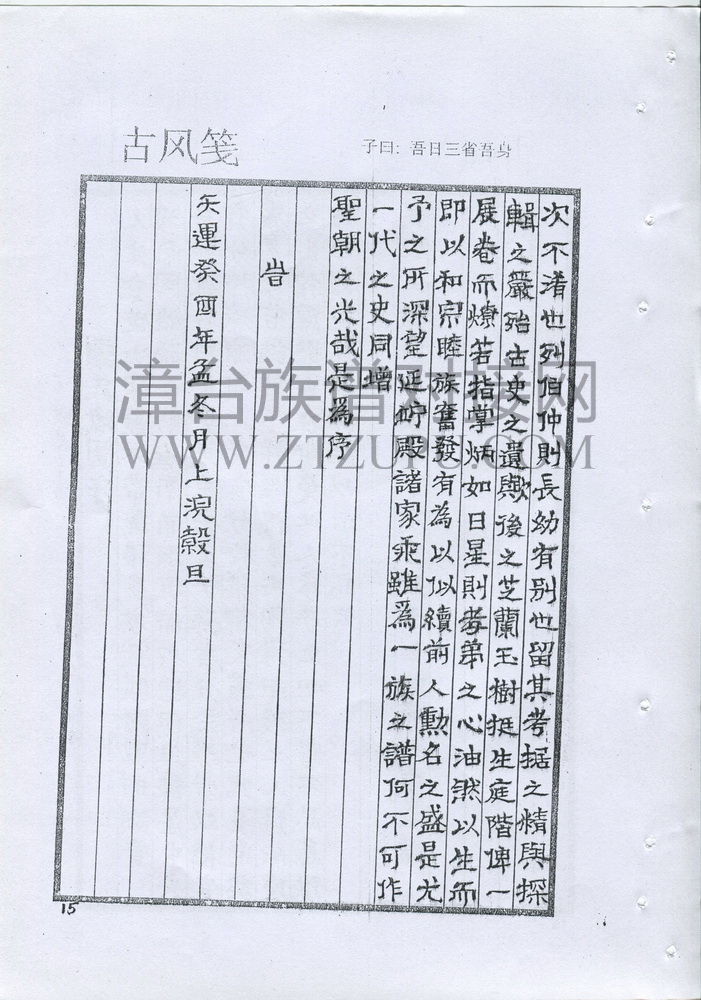 古风笺
子曰：吾日三省吾身
次不淆也列伯仲則長幼有别也留其考据之精與探
輯之嚴殆古史之遺歟後之芝蘭玉樹挺生庭階俾一
展卷而燎若指掌炳如日星則孝弟之心油然以生而
即以和宗睦族奮發有為以似續前人勳名之盛是尤
予之所深望延貯殿諸家乘雖為一族之譜何不可作
一代之史同增
聖朝之光哉是為序
旹
天運癸酉年孟冬月上浣穀旦
15
漳台族谱对接网
WWW.ZTZUPU.COM